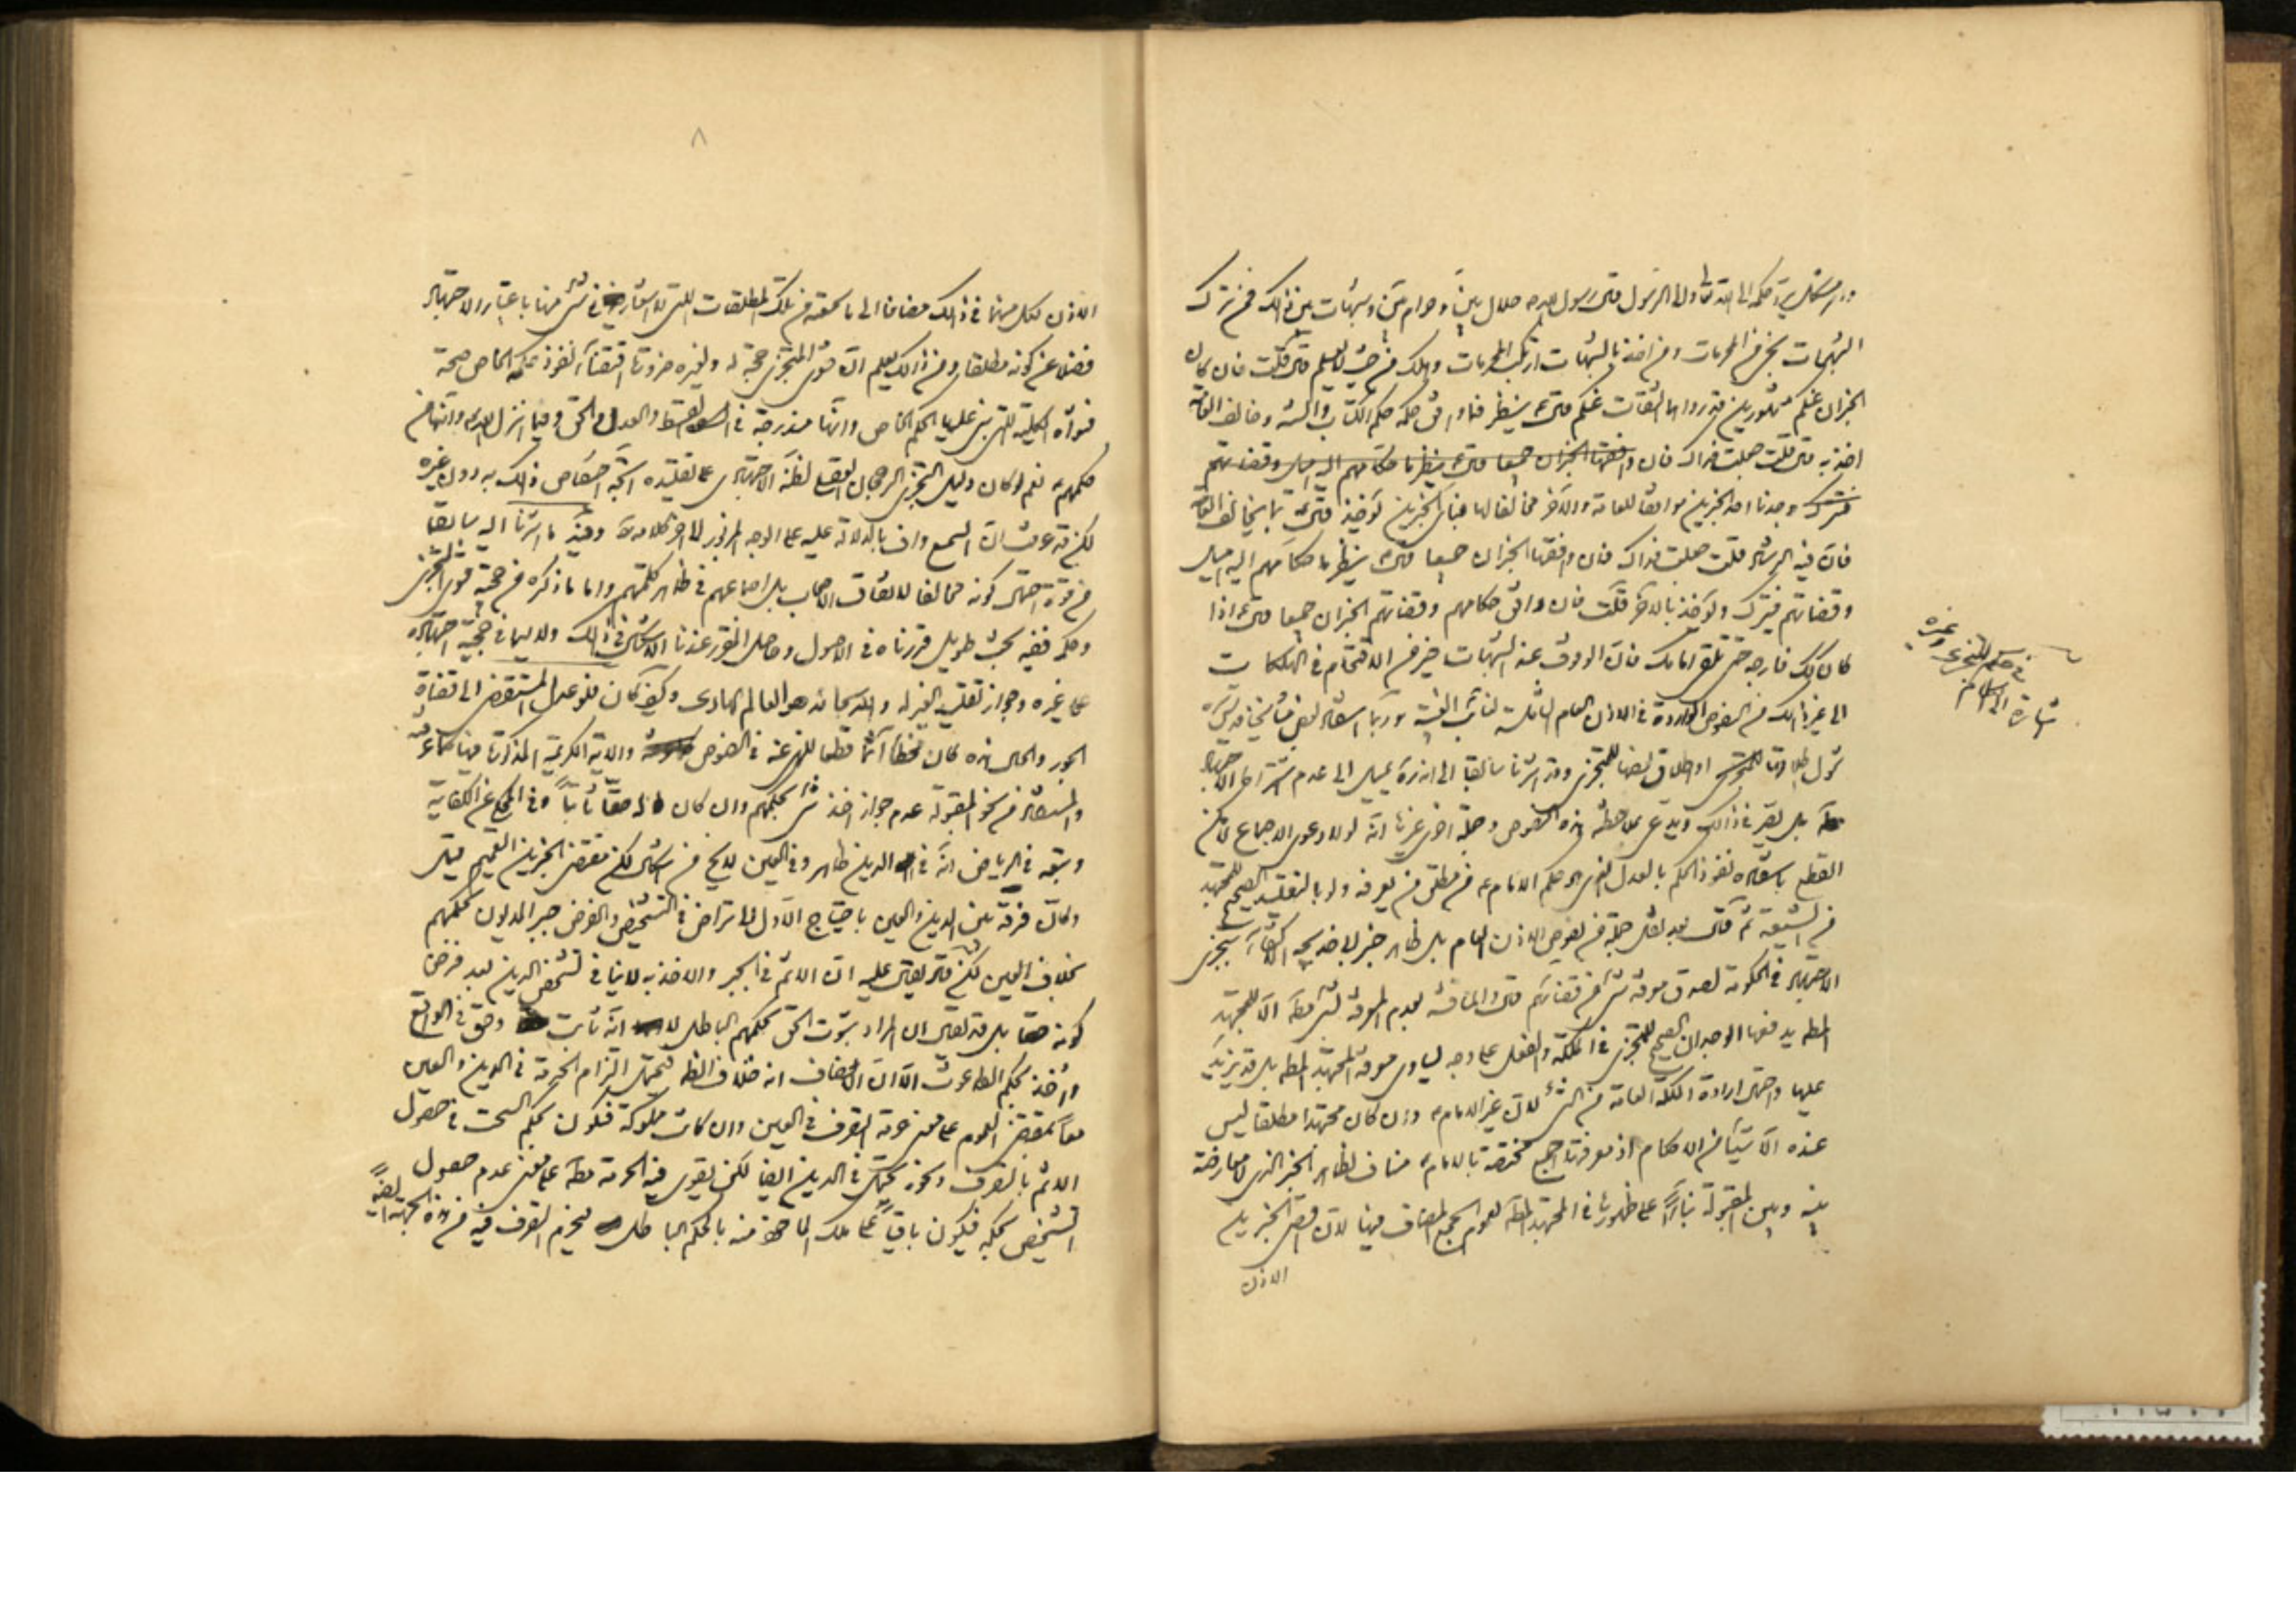 وامر مشكل يرد حكمه الى الله تعالى والى الرسول قال رسول الله ص حلال بين وحرام بين وشبهات بين ذلك فمن ترك
الشبهات نجى من المحرمات ومن اخذ بالشبهات ارتكب المحرمات وهلك من حيث لا يعلم قال قلت فان كان
الخبران عنكم مشهورين قد رواهما الثقات عنكم قال ينظر فما وافق حكمه حكم الكتاب والسنة وخالف العامة
اخذ به قال قلت جعلت فداك فان وافقها الخبران جميعا قال ينظر ما حكامهم اليه اميل وقضاتهم
فيترك وجدنا احد الخبرين موافقا للعامة والآخر مخالفا لها فباى الخبرين يؤخذ قال بما يخالف العامة
فان فيه الرشاد قلت جعلت فداك فان وافقها الخبران جميعا قال ينظر ما حكامهم اليه اميل
وقضاتهم فيترك ويؤخذ بالآخر قلت فان وافق حكامهم وقضاتهم الخبران جميعا قال اذا
كان كك فارجه حتى تلقى امامك فان الوقوف عند الشبهات خير من الاقتحام في الهلكات
الى غير ذلك من النصوص الواردة في الاذن العام الشاملة لنائب الغيبة وربما استفاد بعض مشايخنا قدس سره
شمول اطلاق او اطلاق بعضها للمتجزى وقد اشرنا سابقا الى انه ره يميل الى عدم اشتراط الاجتهاد
بل يصر في ذلك ويدعى بملاحظة هذه النصوص وجملة اخرى غيرها انه لولا دعوى الاجماع لامكن
القطع باستفاده نفوذ الحكم بالعدل الذى هو حكم الامام ع من مطلق من يعرفه ولو بالتقليد الصحيح للمجتهد
من الشيعة ثم قال بعد نقل جملة من نصوص الاذن العام بل ظاهر خبر ابى خديجة الاكتفاء بتجزى
الاجتهاد في الحكومة لصدق معرفة شئ من قضائهم قال والمناقشة بعدم المعرفة لشئ مطلقا الا للمجتهد
المط يدفعها الوجدان الصحيح للمتجزى في الملكة والفعل على وجه يساوى معرفة المجتهد المط بل قد يزيد
عليها واحتمال ارادة الملكة العامة من الشئ لان غير الامام ع وان كان مجتهدا مطلقا ليس
عنده الا شيئا من الاحكام اذ معرفة الجميع مختصة بالامام ع مناف لظاهر الخبر الذى لا معارضة
بينه وبين المقبولة بناء على ظهورها في المجتهد المط لعموم الجمع المضاف فيها لان قصارى الخبرين
الاذن
في حكم المتجزى وغيره
اشارة الى كلام
٨
الاذن لكل منهما في ذلك مضافا الى ما سمعته من تلك المطلقات التى لا اشعار في شئ منها باعتبار الاجتهاد
فضلا عن كونه مطلقا ومن ذلك يعلم ان فتوى المتجزى حجة له ولغيره ضرورة اقتضاء نفوذ حكمه الخاص صحة
فتواه الكلية التى بنى عليها الحكم الخاص وانها مندرجة في القسط والعدل والحق وفيما انزل الله وانها من
حكمهم ع نعم لو كان دليل التجزى الرجحان العقلى لظنه الاجتهادى على تقليده اتجه اختصاص ذلك به دون غيره
لكن قد عرفت ان السمع واف بالدلالة عليه على الوجه المزبور الى آخر كلامه وفيه ما اشرنا اليه سابقا
من قوة احتمال كونه مخالفا لاتفاق الاصحاب بل اجماعهم في ظاهر كلمتهم واما ما ذكره من حجية فتوى المتجزى
وحكمه ففيه بحث طويل قررناه في الاصول وحاصل المقرر عندنا الاشكال في ذلك ولا سيما في حجية اجتهاده
على غيره وجواز تقليد الغير له والله سبحانه هو العالم الهادى وكيف كان فلو عدل المستقضى الى قضاة
الجور والحال هذه كان مخطأ آثما قطعا للنهى عنه في النصوص والاية الكريمة المذكورة فيها كما عرفت
والمستفاد من نحو المقبولة عدم جواز اخذ شئ بحكمهم وان كان له حقا ثابتا وفى المحكى عن الكفاية
وتبعه في الرياض انه في الدين ظاهر وفى العين لا يخ من اشكال لكن مقتضى الخبرين التعميم فيه
وكان فرقه بين الدين والعين باحتياج الاول الى تراض في التشخيص والفرض جبر المديون بحكمهم
بخلاف العين لكن قد يقال عليه ان الاثم في الجبر والاخذ به لا ينافى تشخص الدين بعد فرض
كونه حقا بل قد يقال ان المراد بثبوت الحق بحكمهم الباطل لا انه ثابت وحق في الواقع
واخذ بحكم الطاغوت الا ان الانصاف انه خلاف الظ فيحتمل التزام الحرمة في الدين والعين
معا بمقتضى العموم على معنى حرمة التصرف في العين وان كانت مملوكة فتكون بحكم السحت في حصول
الاثم بالتصرف ونحوه يحتمل في الدين ايضا لكن يقوى فيه الحرمة مطلقا على معنى عدم حصول
التشخيص بحكمه فيكون باقيا على ملك الماخوذ منه بالحكم الباطل فيحرم التصرف فيه من هذه الجهة ايضا